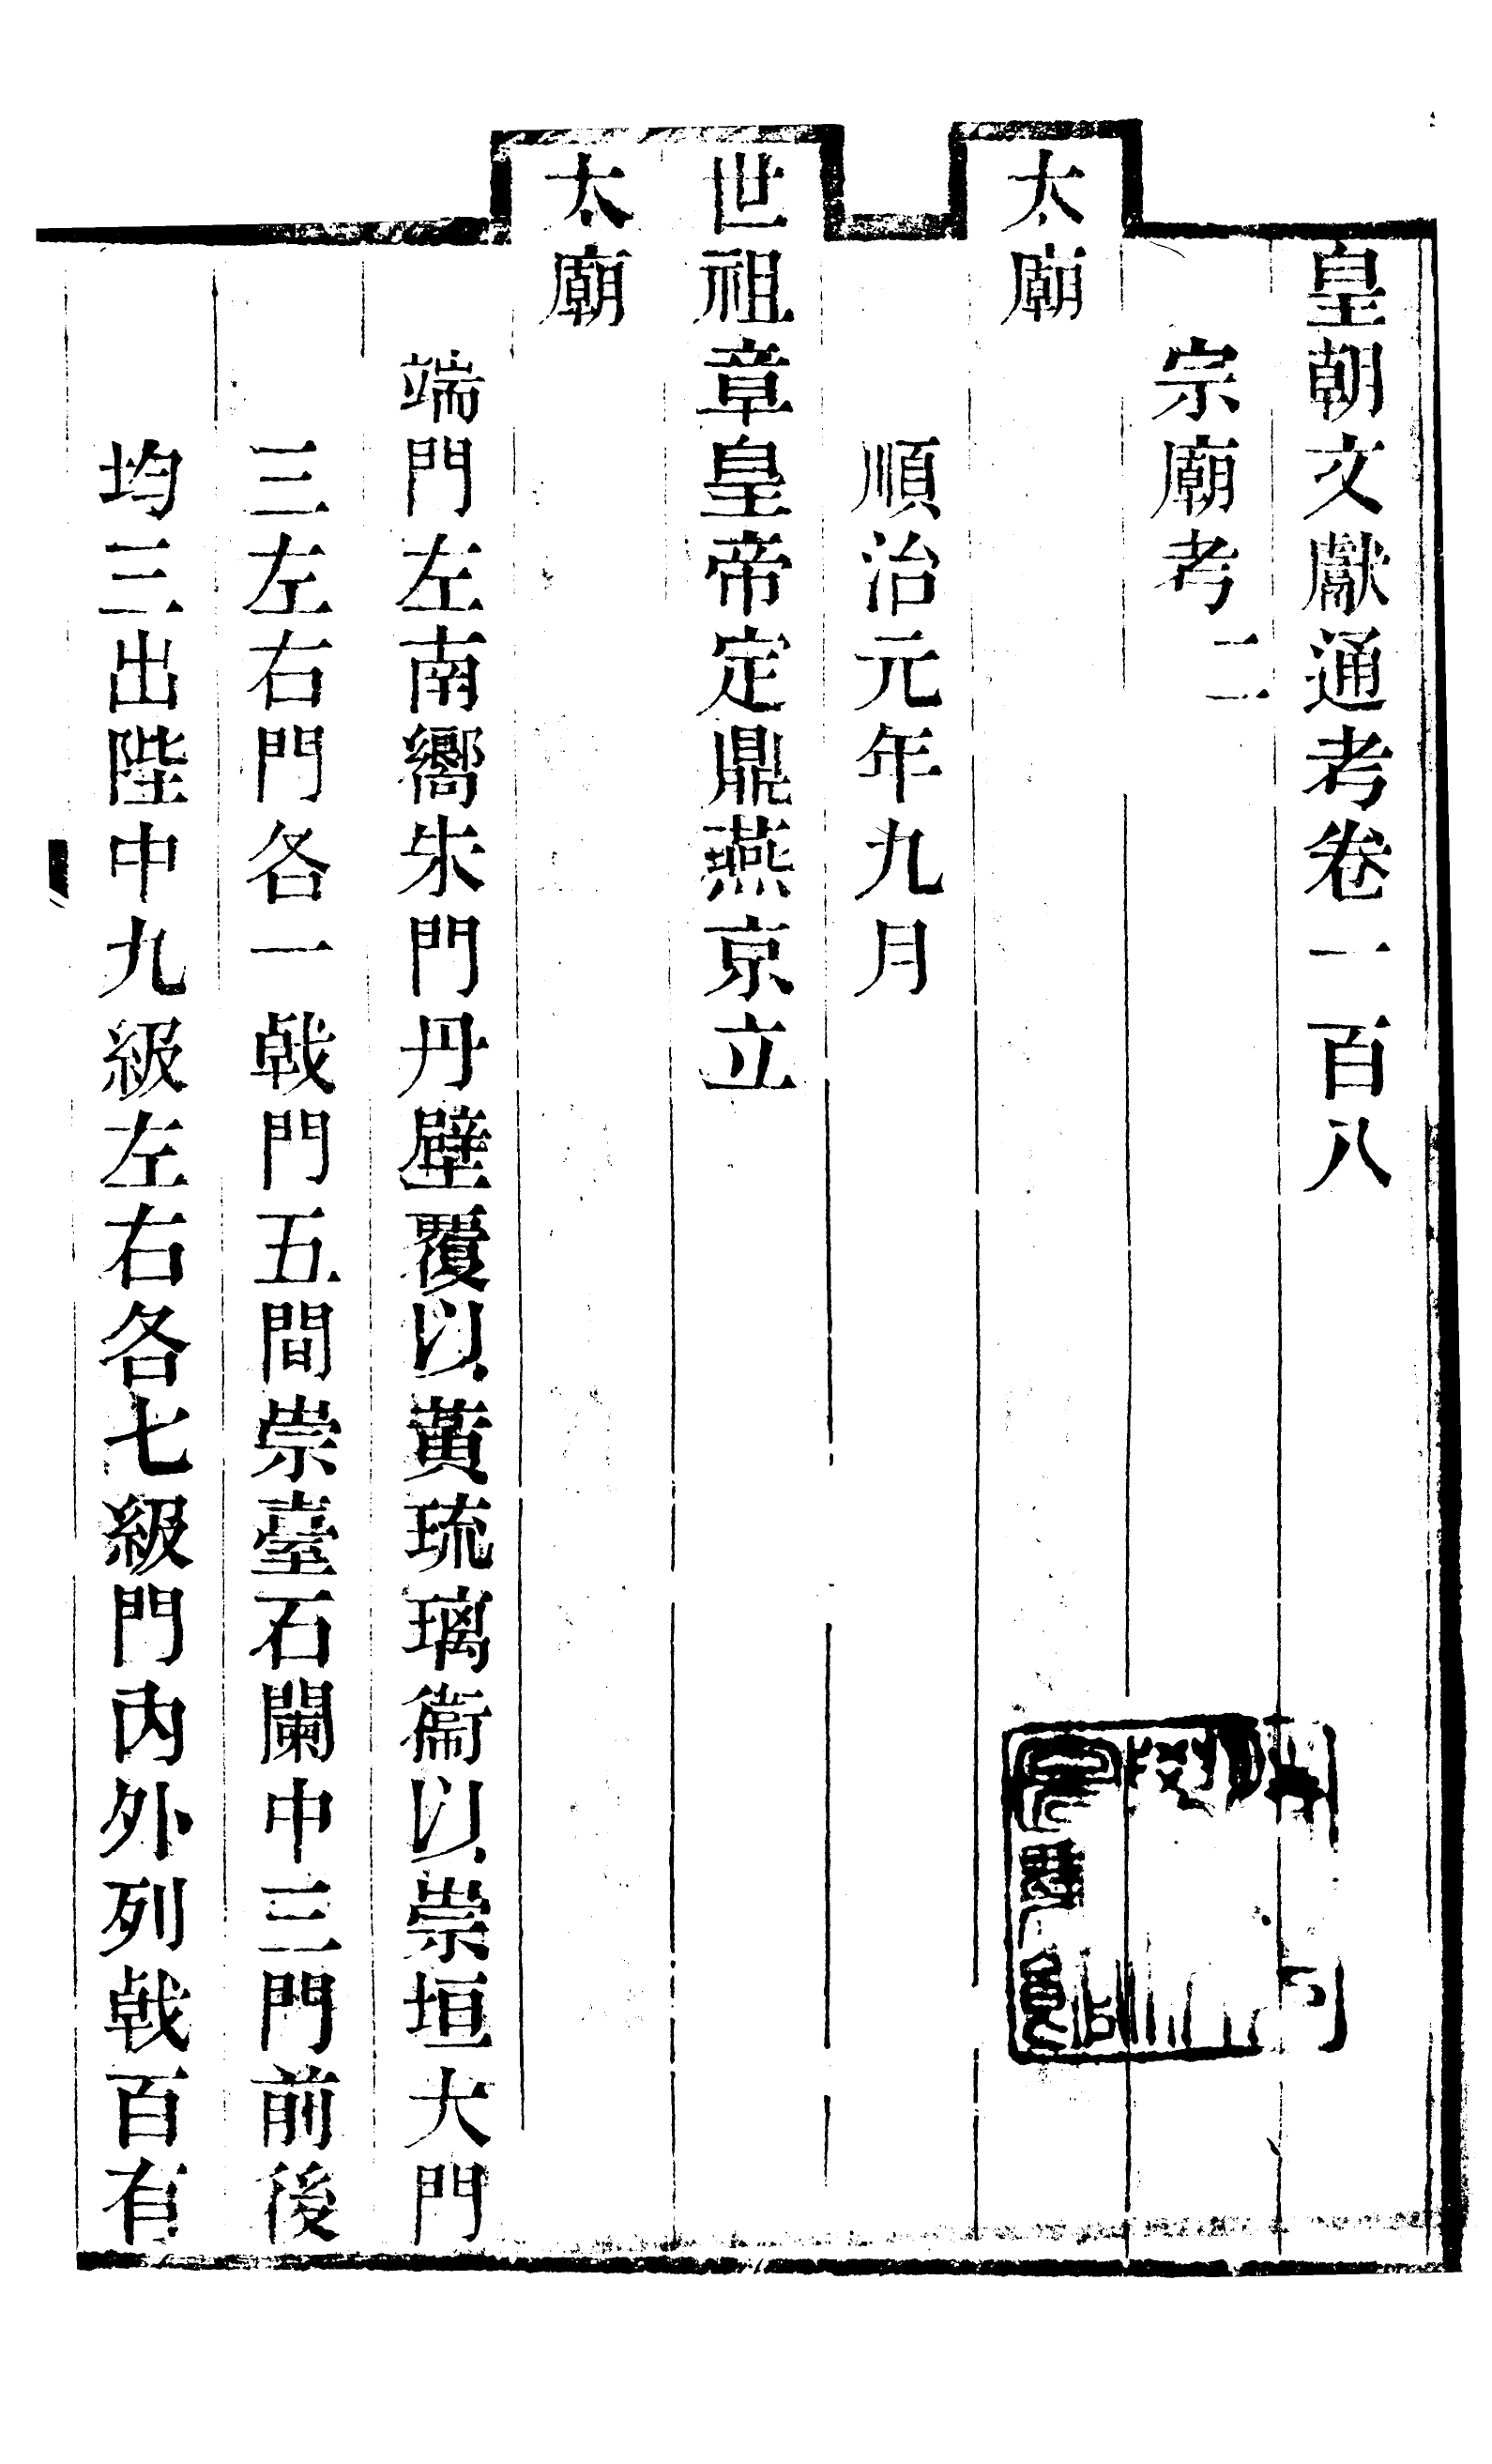 皇朝文獻通考卷一百八
宗廟考二
太廟
順治元年九月
世祖章皇帝定鼎燕京立
太廟
端門左南嚮朱門丹壁覆以黃琉璃衞以崇垣大門
三左右門各一戟門五間崇臺石闌中三門前後
均三出陛中九級左右各七級門內外列戟百有